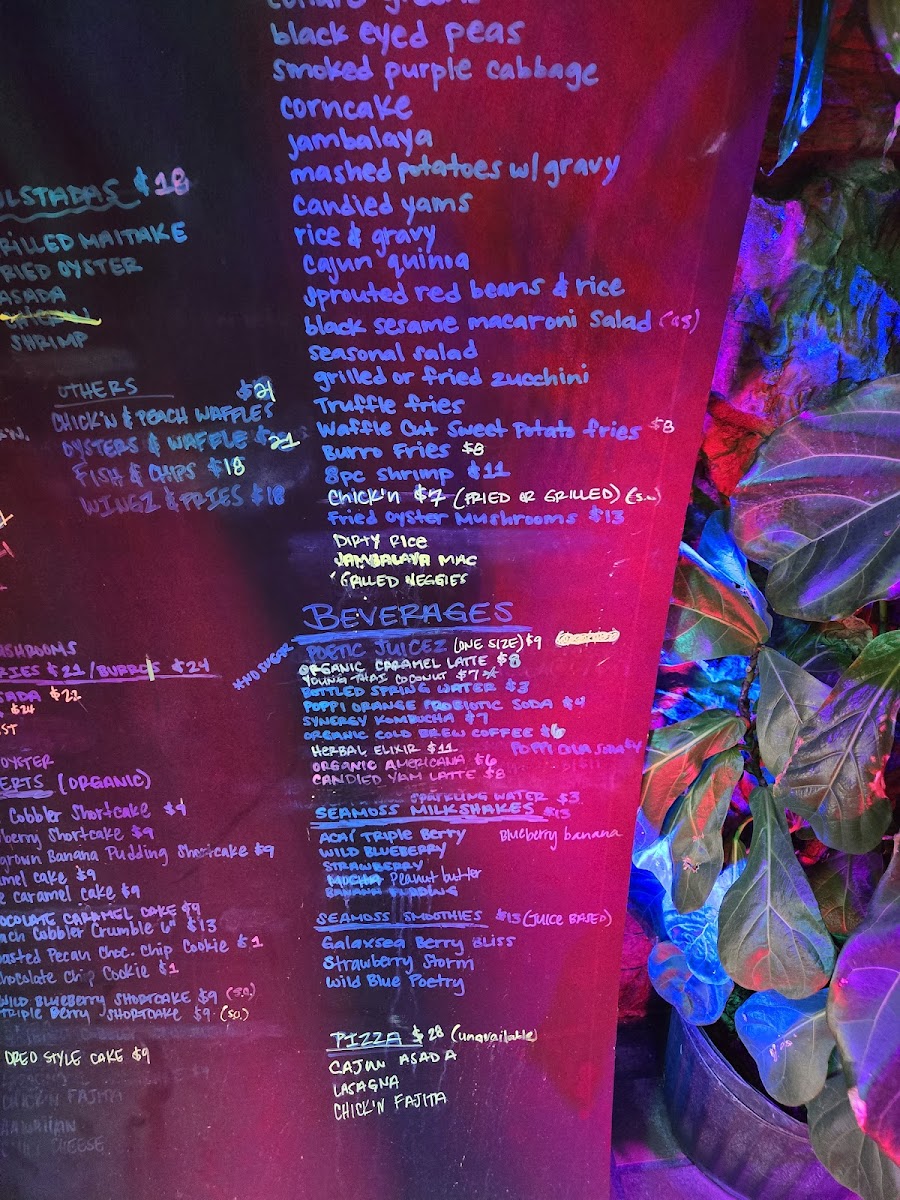 black eyed peas
smoked purple cabbage
corncake
jambalaya
mashed potatoes w/ gravy
candied yams
rice & gravy
cajun quinoa
sprouted red beans & rice
black sesame macaroni salad
seasonal salad
grilled or fried zucchini
Truffle fries
Waffle Cut Sweet Potato fries $8
Burro Fries $8
8pc shrimp $11
Chick'n $7 (FRIED OR GRILLED) (s.o.)
Fried Oyster Mushrooms $13
DIRTY RICE
JAMBALAYA MAC
GRILLED VEGGIES
$18
OYSTER
ASADA
SHRIMP
OTHERS $21
CHICK'N & PEACH WAFFLES
OYSTERS & WAFFLE $21
FISH & CHIPS $18
WINGZ & FRIES $18
BEVERAGES
*NO SUGAR
POETIC JUICEZ (ONE SIZE) $9
ORGANIC CARAMEL LATTE $8
YOUNG THAI COCONUT $7
BOTTLED SPRING WATER $3
POPPI ORANGE PROBIOTIC SODA $4
SYNERGY KOMBUCHA $7
ORGANIC COLD BREW COFFEE $6
HERBAL ELIXIR $11
POPPI SODA $4
ORGANIC AMERICANA $6
CANDIED YAM LATTE $8
SPARKLING WATER $3
SEAMOSS MILKSHAKES $13
ACAI TRIPLE BERRY
Blueberry banana
WILD BLUEBERRY
STRAWBERRY
Peanut butter
BANANA PUDDING
SEAMOSS SMOOTHIES $13 (JUICE BASED)
Galaxsea Berry Bliss
Strawberry Storm
Wild Blue Poetry
PIZZA $28 (unavailable)
CAJUN ASADA
LASAGNA
CHICK'N FAJITA
$21 / BURROS $24
$22
$24
OYSTER
(ORGANIC)
Cobbler Shortcake $9
Shortcake $9
Banana Pudding Shortcake $9
cake $9
caramel cake $9
CARAMEL CAKE $9
Cobbler Crumble 6" $13
Pecan Choc. Chip Cookie $1
Chocolate Chip Cookie $1
WILD BLUEBERRY SHORTCAKE $9 (s.o.)
TRIPLE BERRY SHORTCAKE $9 (s.o.)
STYLE CAKE $9
CHICK'N FAJITA
HAWAIIAN
CHEESE